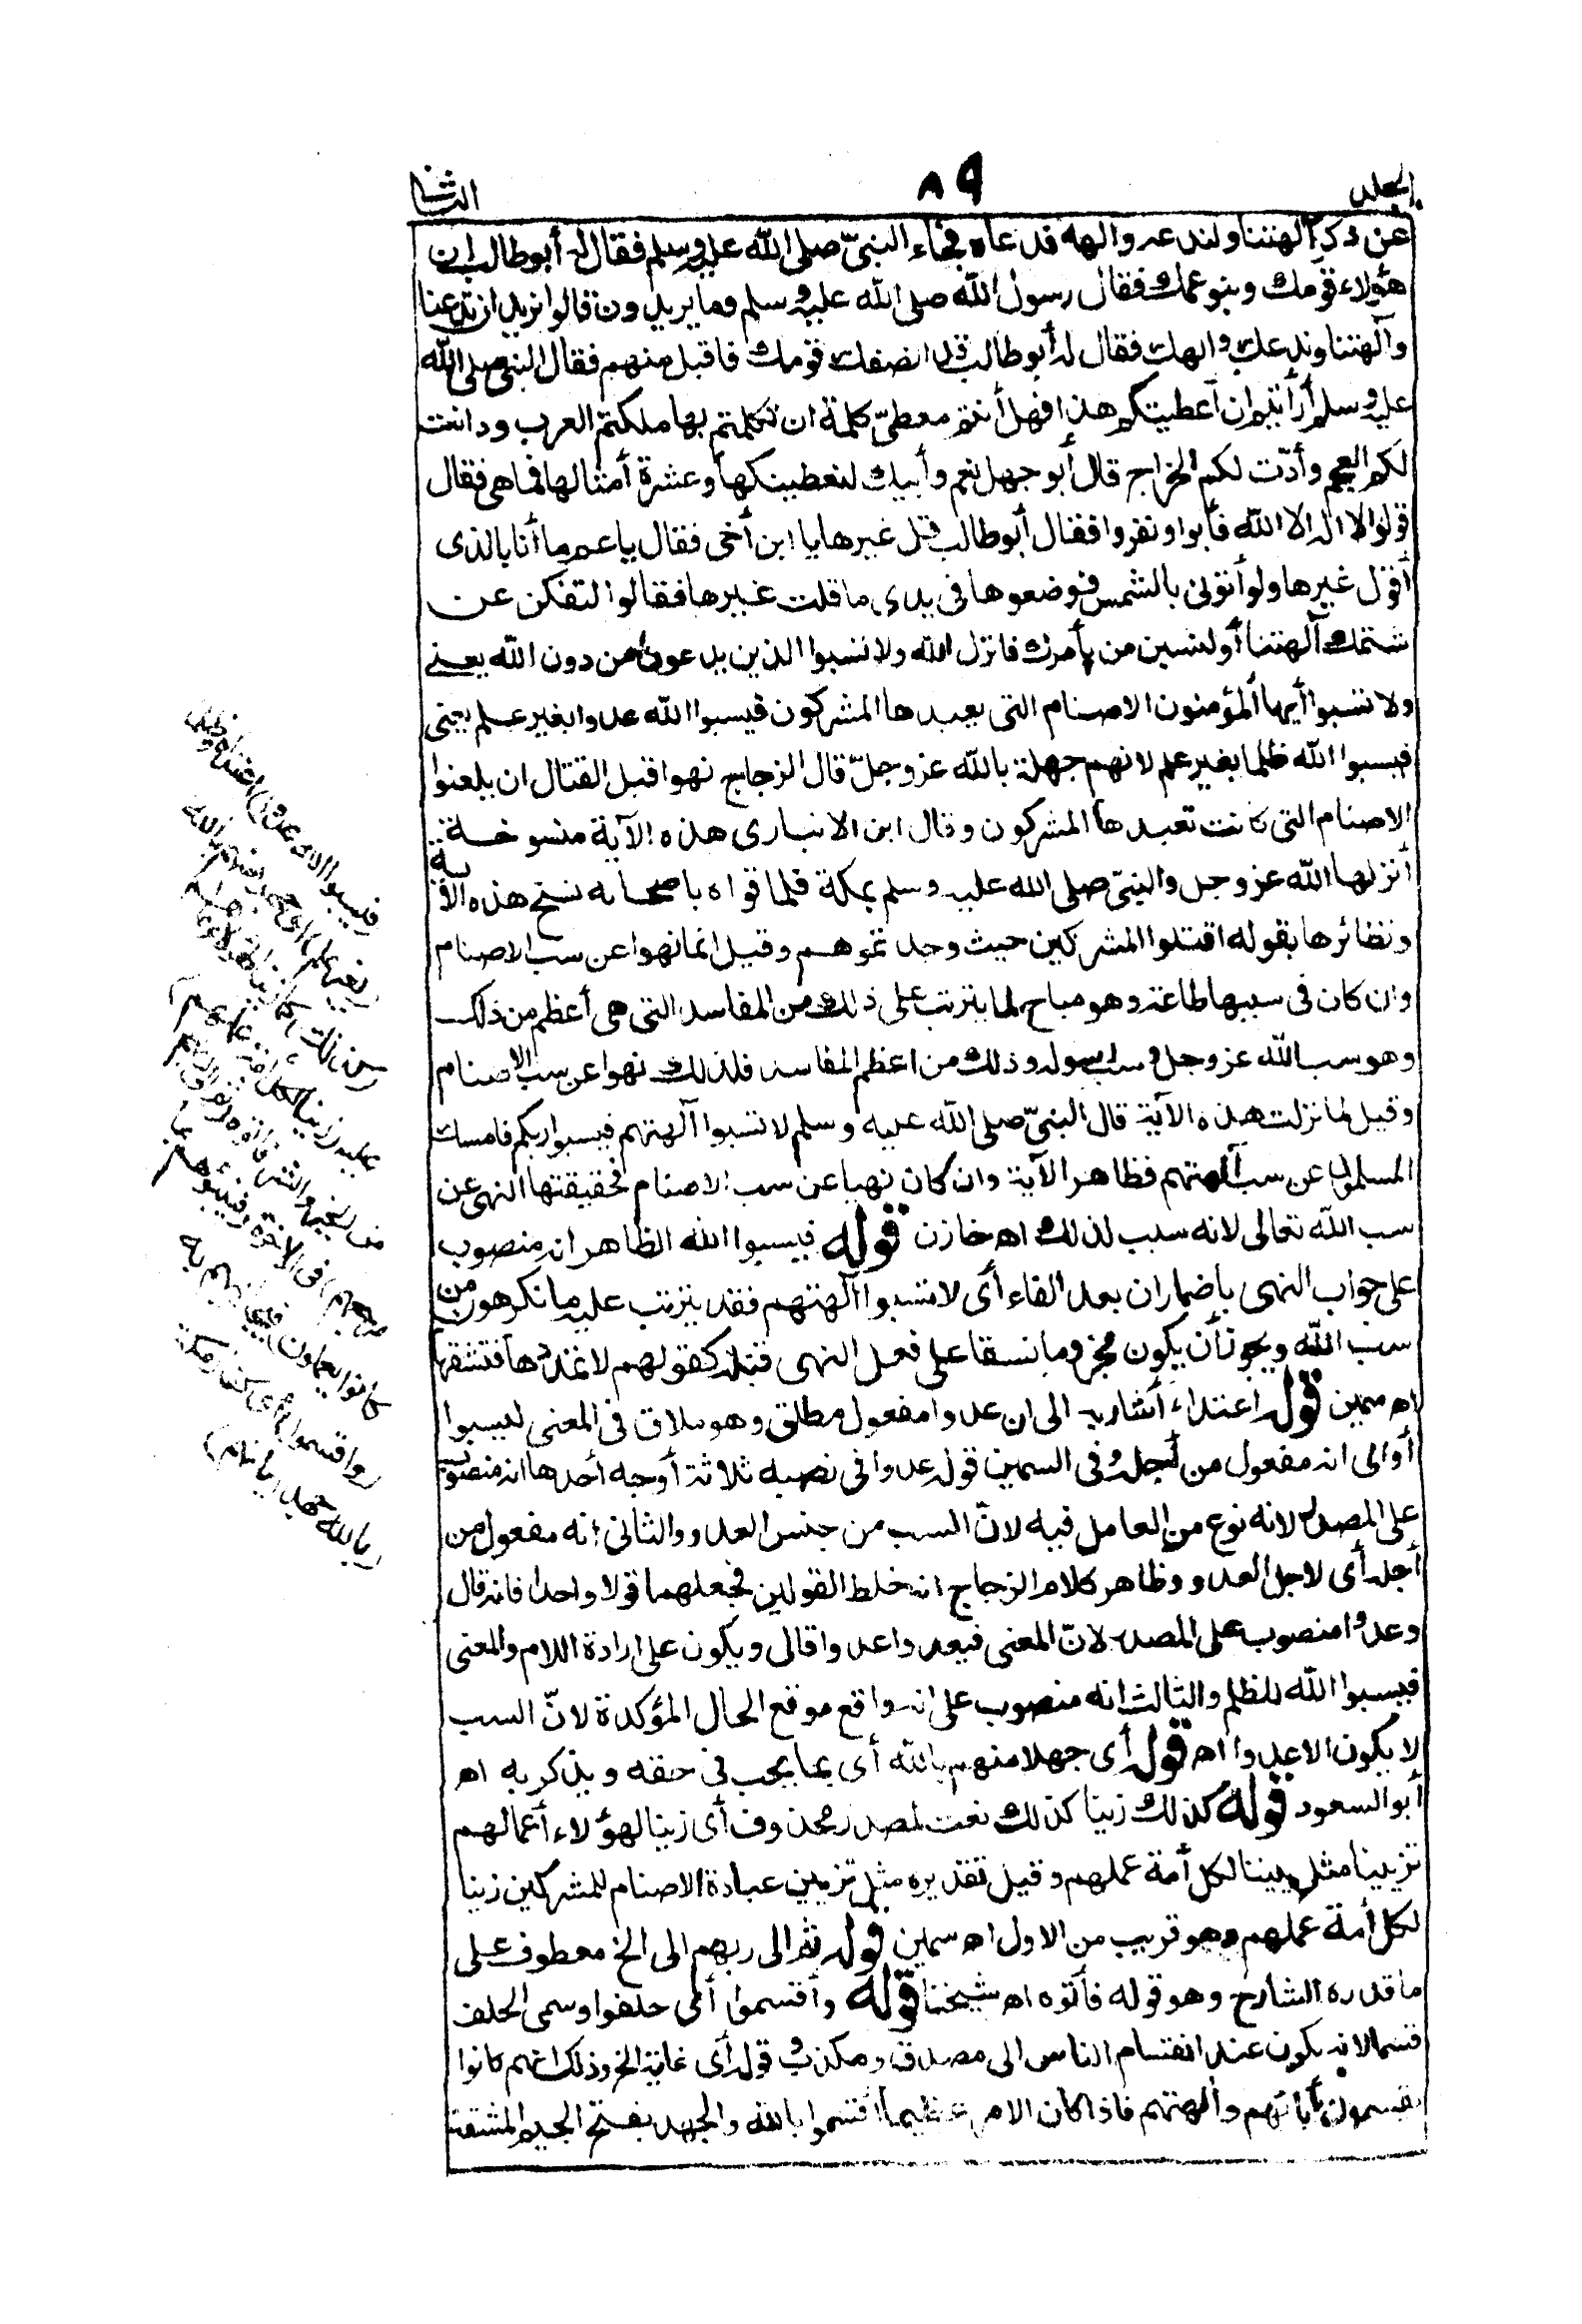 المجلد
٨٩
الثا
عن ذكر آلهتنا ولندعه والهه فدعاه فجاء النبيّ صلى الله عليه وسلم فقال له أبو طالب ان
هؤلاء قومك وبنو عمك فقال رسول الله صلى الله عليه وسلم وما يريدون قالوا نريد ان تدعنا
وآلهتنا وندعك والهك فقال له أبو طالب قد انصفك قومك فاقبل منهم فقال النبي صلى الله
عليه وسلم أرأيتم ان أعطيتكم هذا فهل أنتم معطىّ كلمة ان تكلمتم بها ملكتم العرب ودانت
لكم العجم وأدّت لكم الخراج قال أبو جهل نعم وأبيك لنعطينكها وعشرة أمثالها فما هى فقال
قولوا لا اله الا الله فأبوا ونفروا فقال أبو طالب قل غيرها يا ابن أخى فقال يا عم ما أنا بالذى
أقول غيرها ولو أتونى بالشمس فوضعوها فى يدى ما قلت غيرها فقالوا لتفكن عن
شتمك آلهتنا أو لنسبن من يأمرك فانزل الله ولا تسبوا الذين يدعون من دون الله يعنى
ولا تسبوا أيها المؤمنون الاصنام التى يعبدها المشركون فيسبوا الله عدوا بغير علم يعنى
فيسبوا الله ظلما بغير علم لانهم جهلة بالله عز وجلّ قال الزجاج نهوا قبل القتال ان يلعنوا
الاصنام التى كانت تعبدها المشركون وقال ابن الانبارى هذه الآية منسوخة
أنزلها الله عز وجل والنبىّ صلى الله عليه وسلم بمكة فلما قواه باصحابه نسخ هذه الآية
ونظائرها بقوله اقتلوا المشركين حيث وجدتموهم وقيل انما نهوا عن سب الاصنام
وان كان فى سببها طاعة وهو مباح لما يترتب على ذلك من المفاسد التى هى أعظم من ذلك
وهو سب الله عز وجل وسب رسوله وذلك من اعظم المفاسد فلذلك نهوا عن سب الاصنام
وقيل لما نزلت هذه الآية قال النبىّ صلى الله عليه وسلم لا تسبوا آلهتهم فيسبوا ربكم فامسك
المسلمون عن سب آلهتهم فظاهر الآية وان كان نهيا عن سب الاصنام فحقيقتها النهى عن
سب الله تعالى لانه سبب لذلك اه خازن قوله فيسبوا الله الظاهر انه منصوب
على جواب النهى باضمار ان بعد الفاء أى لا تسبوا آلهتهم فقد يترتب عليه ما تكرهون من
سب الله ويجوز أن يكون مجزوما نسقا على فعل النهى قبله كقولهم لا تمددها فتشقها
اه سمين قوله اعتداء أشار به الى ان عدوا مفعول مطلق وهو ملاق فى المعنى ليسبوا
أو الى انه مفعول من أجله وفى السمين قوله عدوا فى نصبه ثلاثة أوجه أحدها انه منصوب
على المصدر لانه نوع من العامل فيه لانّ السب من جنس العدو والثانى انه مفعول من
أجله أى لاجل العدو وظاهر كلام الزجاج انه خلط القولين فجعلهما قولا واحدا فانه قال
وعدوا منصوب على المصدر لانّ المعنى فيعدوا عدوا قال ويكون على ارادة اللام والمعنى
فيسبوا الله للظلم والثالث انه منصوب على انه واقع موقع الحال المؤكدة لانّ السب
لا يكون الا عدوا اه قوله أى جهلا منهم بالله أى بما يجب فى حقه ويذكر به اه
أبو السعود قوله كذلك زينا كذلك نعت لمصدر محذوف أى زينا لهؤلاء أعمالهم
تزيينا مثل تزييننا لكل أمة عملهم وقيل تقديره مثل تزيين عبادة الاصنام للمشركين زينا
لكل أمة عملهم وهو قريب من الاول اه سمين قوله ثم الى ربهم الى الخ معطوف على
ما قدره الشارح وهو قوله فأتوه اه شيخنا قوله وأقسموا أى حلفوا وسمى الحلف
قسما لانه يكون عند انقسام الناس الى مصدق ومكذب قوله أى غاية الخ وذلك انهم كانوا
يقسمون بآبائهم وآلهتهم فاذا كان الامر عظيما أقسموا بالله والجهد بفتح الجيم المشقة
(فيسبوا الله عدوا) اعتداء وظلما
(بغير علم) أى جهلا منهم بالله
(كذلك) كما زينا لهؤلاء ما هم
عليه (زينا لكل أمة عملهم)
من الخير والشر فأتوه (ثم الى ربهم
مرجعهم) فى الآخرة (فينبئهم بما
كانوا يعملون) فيجازيهم به
(وأقسموا) أى كفار مكة
(بالله جهد أيمانهم)